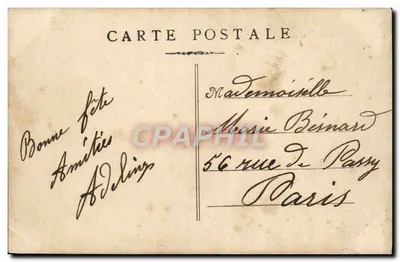 CARTE POSTALE
Bonne fête
Amitiés
Adeline
Mademoiselle
Marie Bésnard
56 rue de Passy
Paris
CPAPHIL